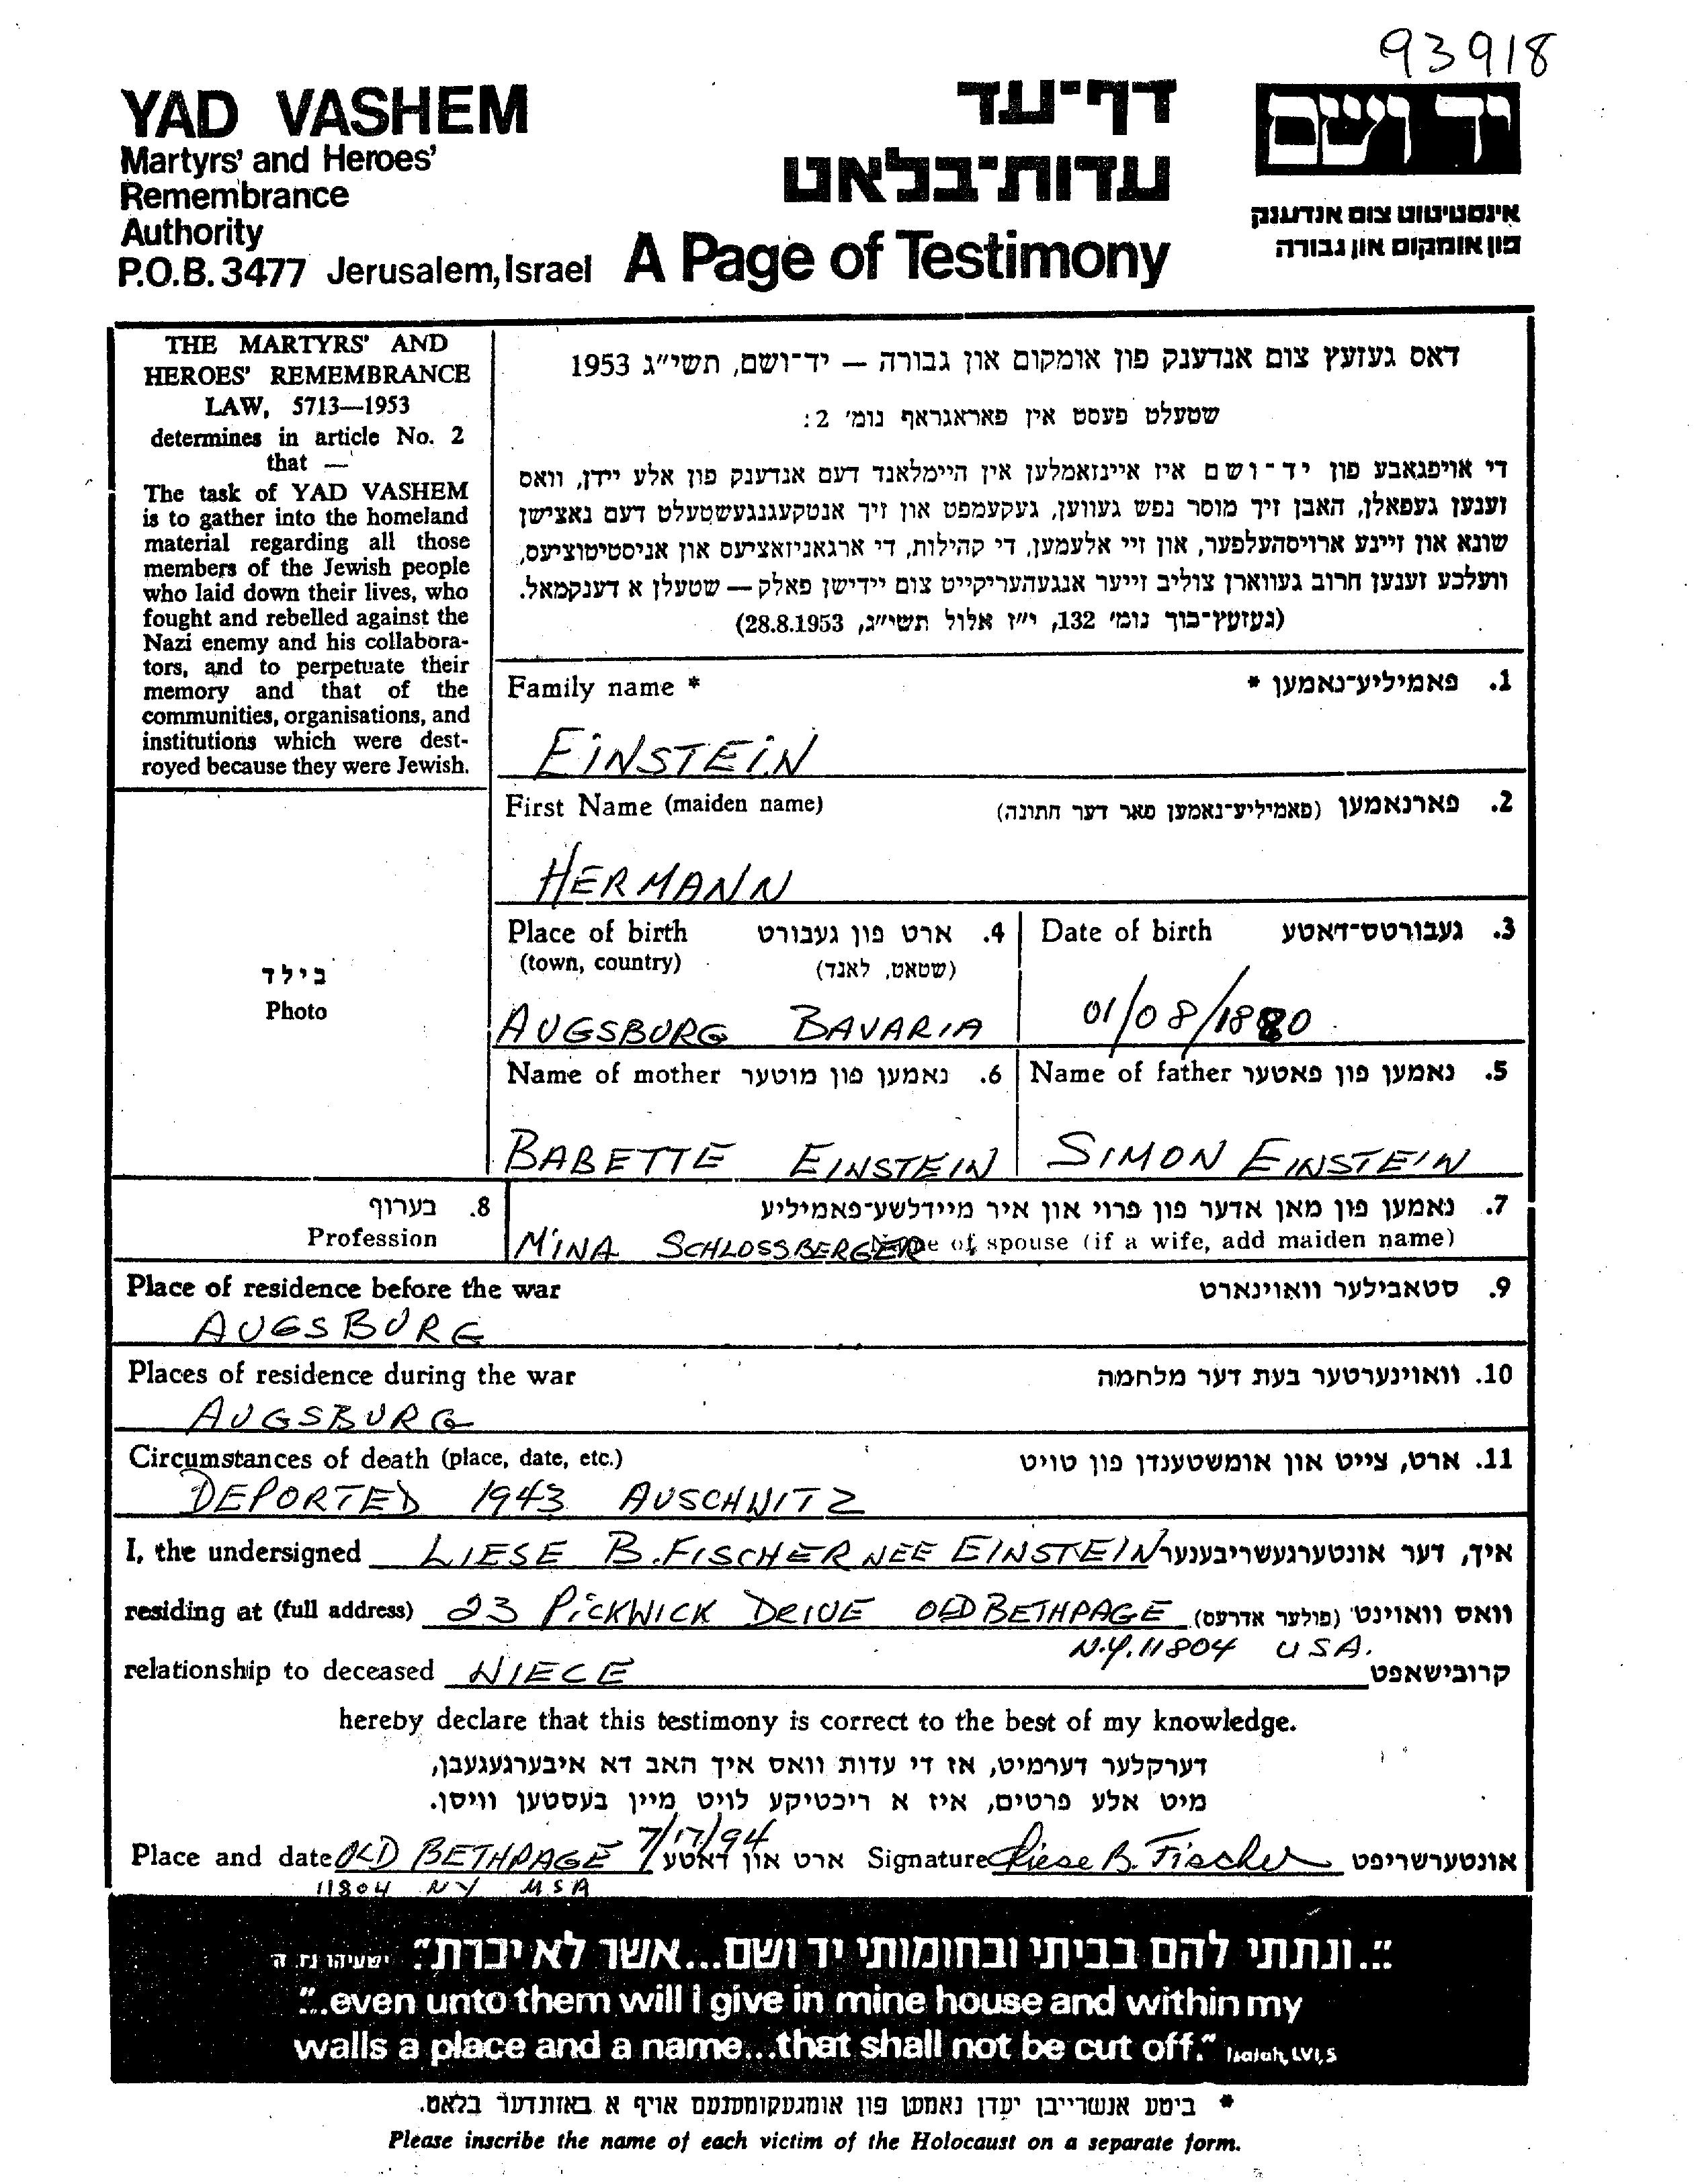 93918
YAD VASHEM
Martyrs' and Heroes'
Remembrance
Authority
P.O.B. 3477 Jerusalem, Israel
דף־עד
עדות־בלאט
A Page of Testimony
יד ושם
אינסטיטוט צום אנדענק
פון אומקום און גבורה
THE MARTYRS' AND
HEROES' REMEMBRANCE
LAW, 5713—1953
determines in article No. 2
that —
The task of YAD VASHEM
is to gather into the homeland
material regarding all those
members of the Jewish people
who laid down their lives, who
fought and rebelled against the
Nazi enemy and his collabora-
tors, and to perpetuate their
memory and that of the
communities, organisations, and
institutions which were dest-
royed because they were Jewish.
דאס געזעץ צום אנדענק פון אומקום און גבורה — יד־ושם, תשי״ג 1953
שטעלט פעסט אין פאראגראף נומ׳ 2:
די אויפגאבע פון יד־ושם איז איינזאמלען אין היימלאנד דעם אנדענק פון אלע יידן, וואס
זענען געפאלן, האבן זיך מוסר נפש געווען, געקעמפט און זיך אנטקעגנגעשטעלט דעם נאצישן
שונא און זיינע ארויסהעלפער, און זיי אלעמען, די קהילות, די ארגאניזאציעס און אניסטיטוציעס,
וועלכע זענען חרוב געווארן צוליב זייער אנגעהעריקייט צום יידישן פאלק — שטעלן א דענקמאל.
(געזעץ־בוך נומ׳ 132, י״ז אלול תשי״ג, 28.8.1953)
Family name * 1. פאמיליע־נאמען *
EINSTEIN
First Name (maiden name) 2. פארנאמען (פאמיליע־נאמען פאר דער חתונה)
HERMANN
Place of birth 4. ארט פון געבורט
(town, country) (שטאט, לאנד)
AUGSBURG BAVARIA
Date of birth 3. געבורטס־דאטע
01/08/1880
Name of mother 6. נאמען פון מוטער
BABETTE EINSTEIN
Name of father 5. נאמען פון פאטער
SIMON EINSTEIN
בילד
Photo
8. בערוף
Profession
7. נאמען פון מאן אדער פון פרוי און איר מיידלשע־פאמיליע
Name of spouse (if a wife, add maiden name)
MINA SCHLOSSBERGER
Place of residence before the war 9. סטאבילער וואוינארט
AUGSBURG
Places of residence during the war 10. וואוינערטער בעת דער מלחמה
AUGSBURG
Circumstances of death (place, date, etc.) 11. ארט, צייט און אומשטענדן פון טויט
DEPORTED 1943 AUSCHWITZ
I, the undersigned LIESE B. FISCHER NEE EINSTEIN איך, דער אונטערגעשריבענער
residing at (full address) 23 PICKWICK DRIVE OLD BETHPAGE וואס וואוינט (פולער אדרעס)
N.Y. 11804 USA.
relationship to deceased NIECE קרובישאפט
hereby declare that this testimony is correct to the best of my knowledge.
דערקלער דערמיט, אז די עדות וואס איך האב דא איבערגעגעבן,
מיט אלע פרטים, איז א ריכטיקע לויט מיין בעסטען וויסן.
Place and date OLD BETHPAGE 7/17/94 ארט און דאטע Signature Liese B. Fischer אונטערשריפט
11804 NY USA
"...ונתתי להם בביתי ובחומותי יד ושם...אשר לא יכרת" ישעיהו נו, ה
"..even unto them will I give in mine house and within my
walls a place and a name...that shall not be cut off." Isaiah, LVI,5
* ביטע אנשרייבן יעדן נאמען פון אומגעקומענעם אויף א באזונדער בלאט.
Please inscribe the name of each victim of the Holocaust on a separate form.